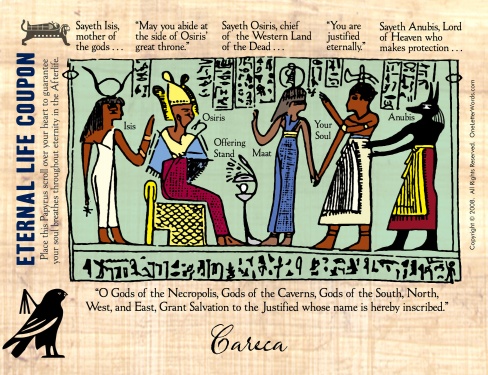 Sayeth Isis,
mother of
the gods . . .
“May you abide at
the side of Osiris’
great throne.”
Sayeth Osiris, chief
of the Western Land
of the Dead . . .
“You are
justified
eternally.”
Sayeth Anubis, Lord
of Heaven who
makes protection . . .
ETERNAL LIFE COUPON
Place this Papyrus scroll over your heart to guarantee
your soul breathes throughout eternity in the Afterlife.
Isis
Osiris
Offering
Stand
Maat
Your
Soul
Anubis
Copyright © 2008. All Rights Reserved. OneLetterWords.com
“O Gods of the Necropolis, Gods of the Caverns, Gods of the South, North,
West, and East, Grant Salvation to the Justified whose name is hereby inscribed.”
Careca